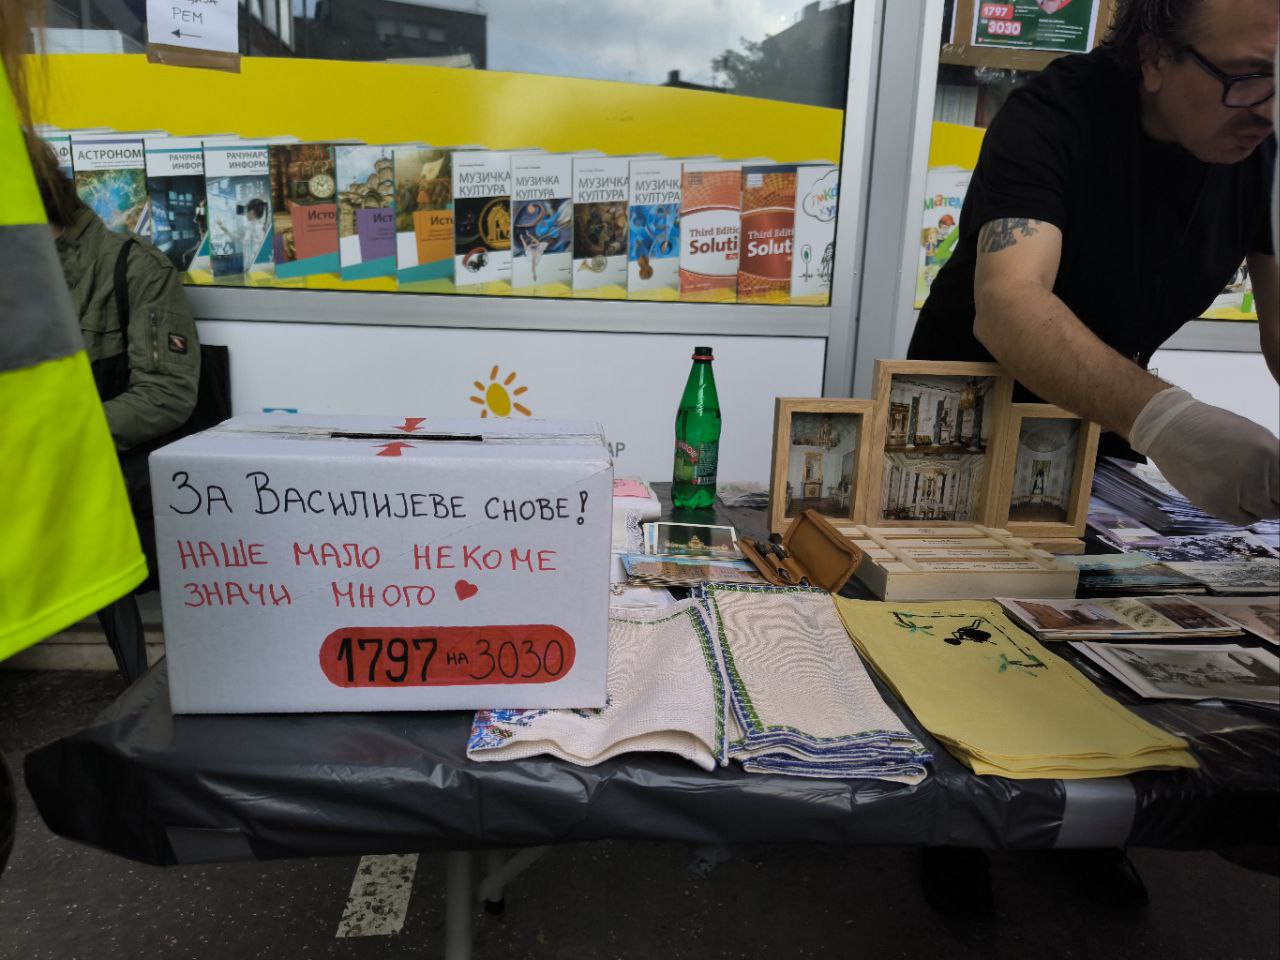 РЕМ
1797
3030
АСТРОНОМ
РАЧУНАРС
ИНФОРМА
МУЗИЧКА
КУЛТУРА
МУЗИЧКА
КУЛТУРА
МУЗИЧКА
КУЛТУРА
МУЗИЧК
КУЛТУРА
Third Editi
Soluti
Third Edition
Solut
ЗА ВАСИЛИЈЕВЕ СНОВЕ!
НАШЕ МАЛО НЕКОМЕ
ЗНАЧИ МНОГО
1797 НА 3030